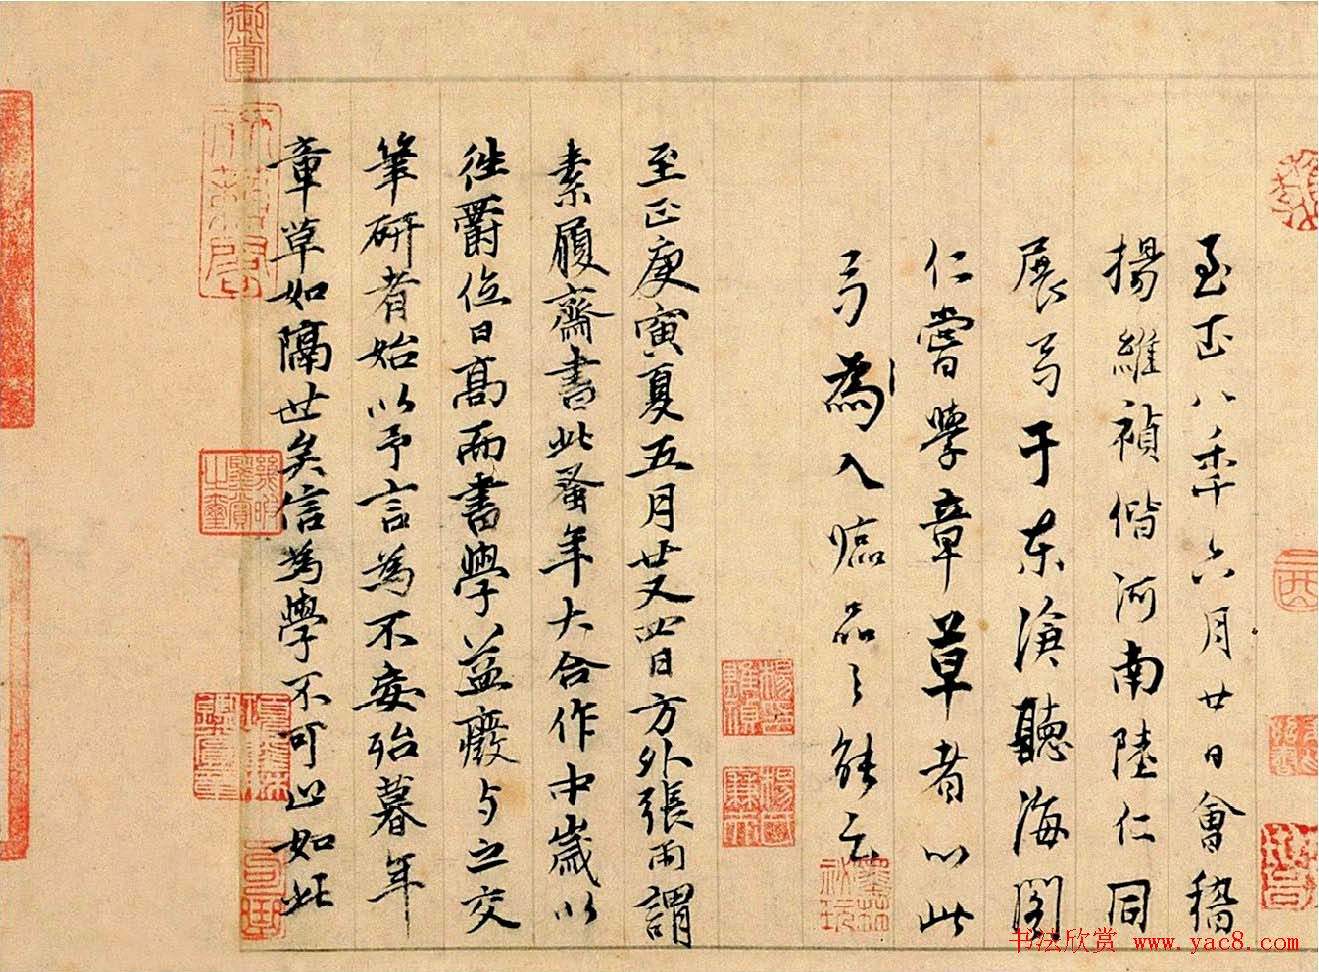 至正八年六月廿日會稽
揚維禎偕河南陸仁同
展弓于東滄聽海閣
仁嘗學章草者以此
弓為入臨品之能云
至正庚寅夏五月廿又四日方外張雨謂
素履齋書此蚤年大合作中歲以
往爵位日高而書學益廢与之交
筆研者始以予言為不妄殆暮年
章草如隔世矣信為學不可止如此
御賞
楊維禎
书法欣赏 www.yac8.com